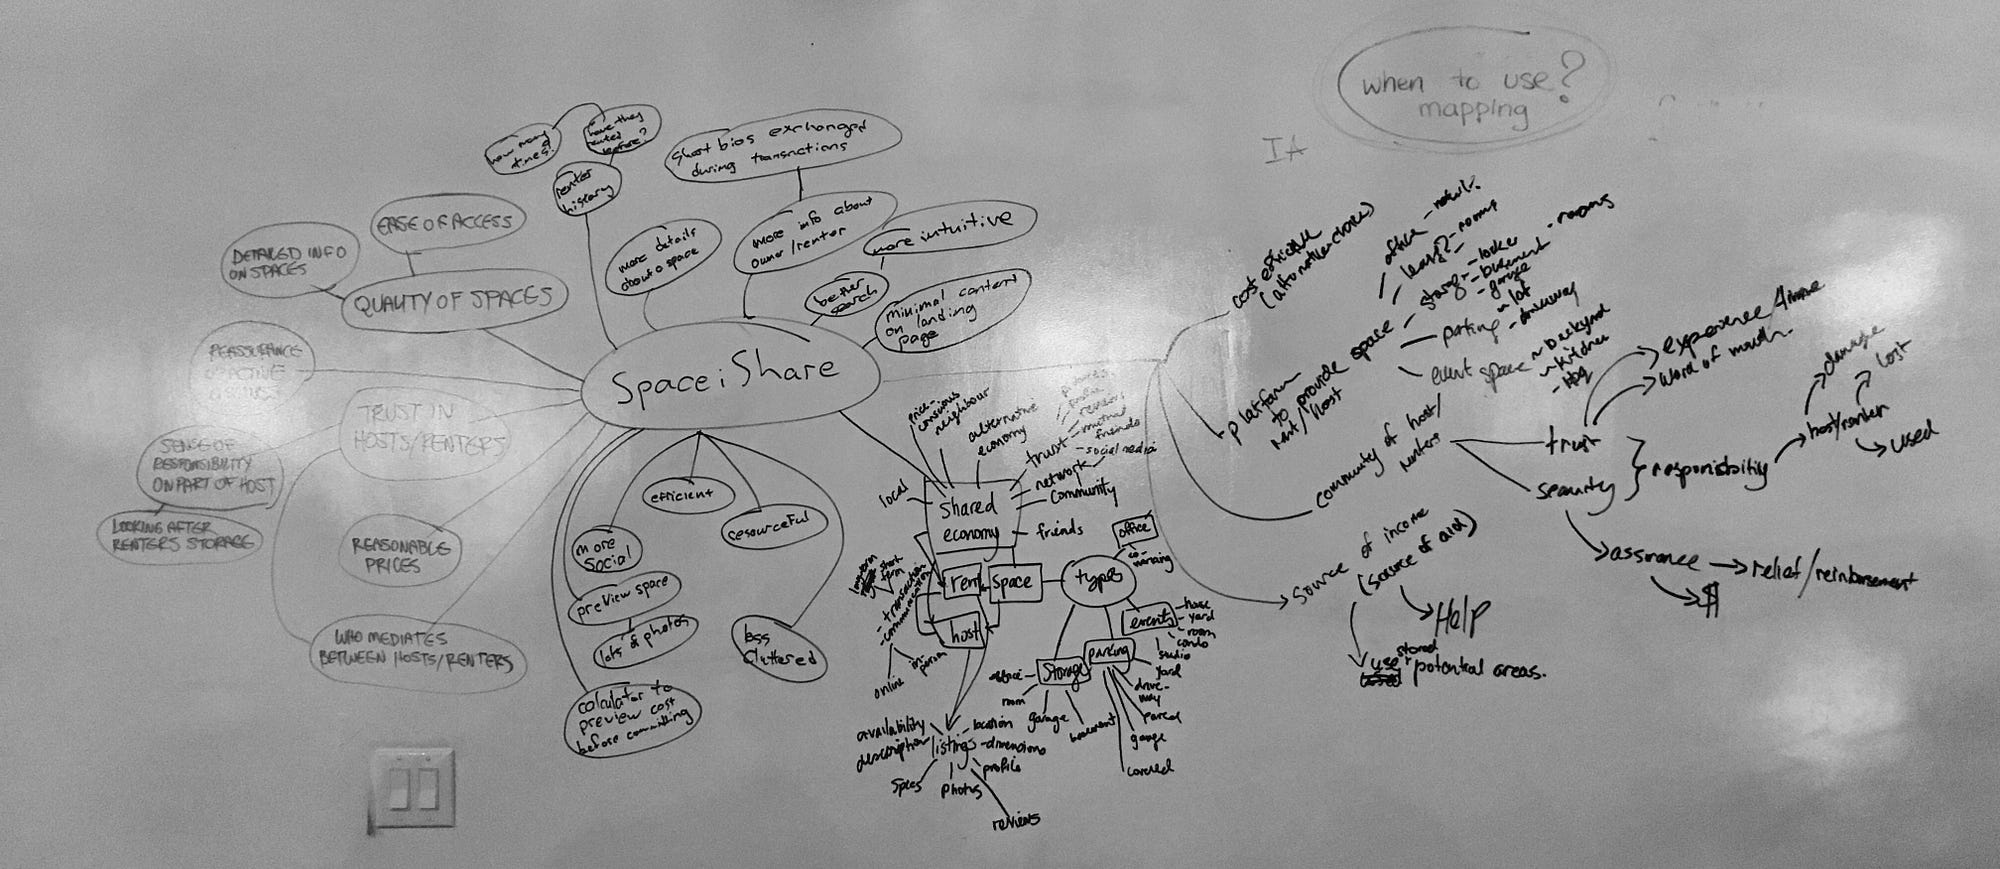 when to use?
mapping
IA
how many
times?
have they
rented
before?
renter
history
short bios exchanged
during transactions
more info about
owner/renter
more details
about a space
more intuitive
better
search
minimal content
on landing
page
EASE OF ACCESS
DETAILED INFO
ON SPACES
QUALITY OF SPACES
Space:Share
REASSURANCE
TRUST IN
HOSTS/RENTERS
SENSE OF
RESPONSIBILITY
ON PART OF HOST
LOOKING AFTER
RENTERS STORAGE
REASONABLE
PRICES
WHO MEDIATES
BETWEEN HOSTS/RENTERS
efficient
resourceful
more
social
preview space
lots of photos
calculator to
preview cost
before committing
less
cluttered
price-
conscious
neighbour
alternative
economy
trust
reviews
mutual
friends
- social media
network
community
local
shared
economy
friends
rent
space
host
- transaction
- communication
online
in-
person
types
office
co-
working
events
house
yard
room
condo
studio
parking
yard
drive-
way
garage
covered
storage
office
room
garage
basement
listings
availability
description
specs
photos
location
- dimensions
profile
reviews
cost efficient
platform
to provide space
rent/host
office
- rooms
storage
- locker
- basement
- garage
- rooms
parking
- lot
- driveway
event space
- backyard
- kitchen
community of host/
renters
trust
security
experience/time
word of mouth
responsibility
host/renter
damage
lost
used
assurance
relief/reimbursement
$
source of income
(source of aid)
Help
use stored
potential areas.